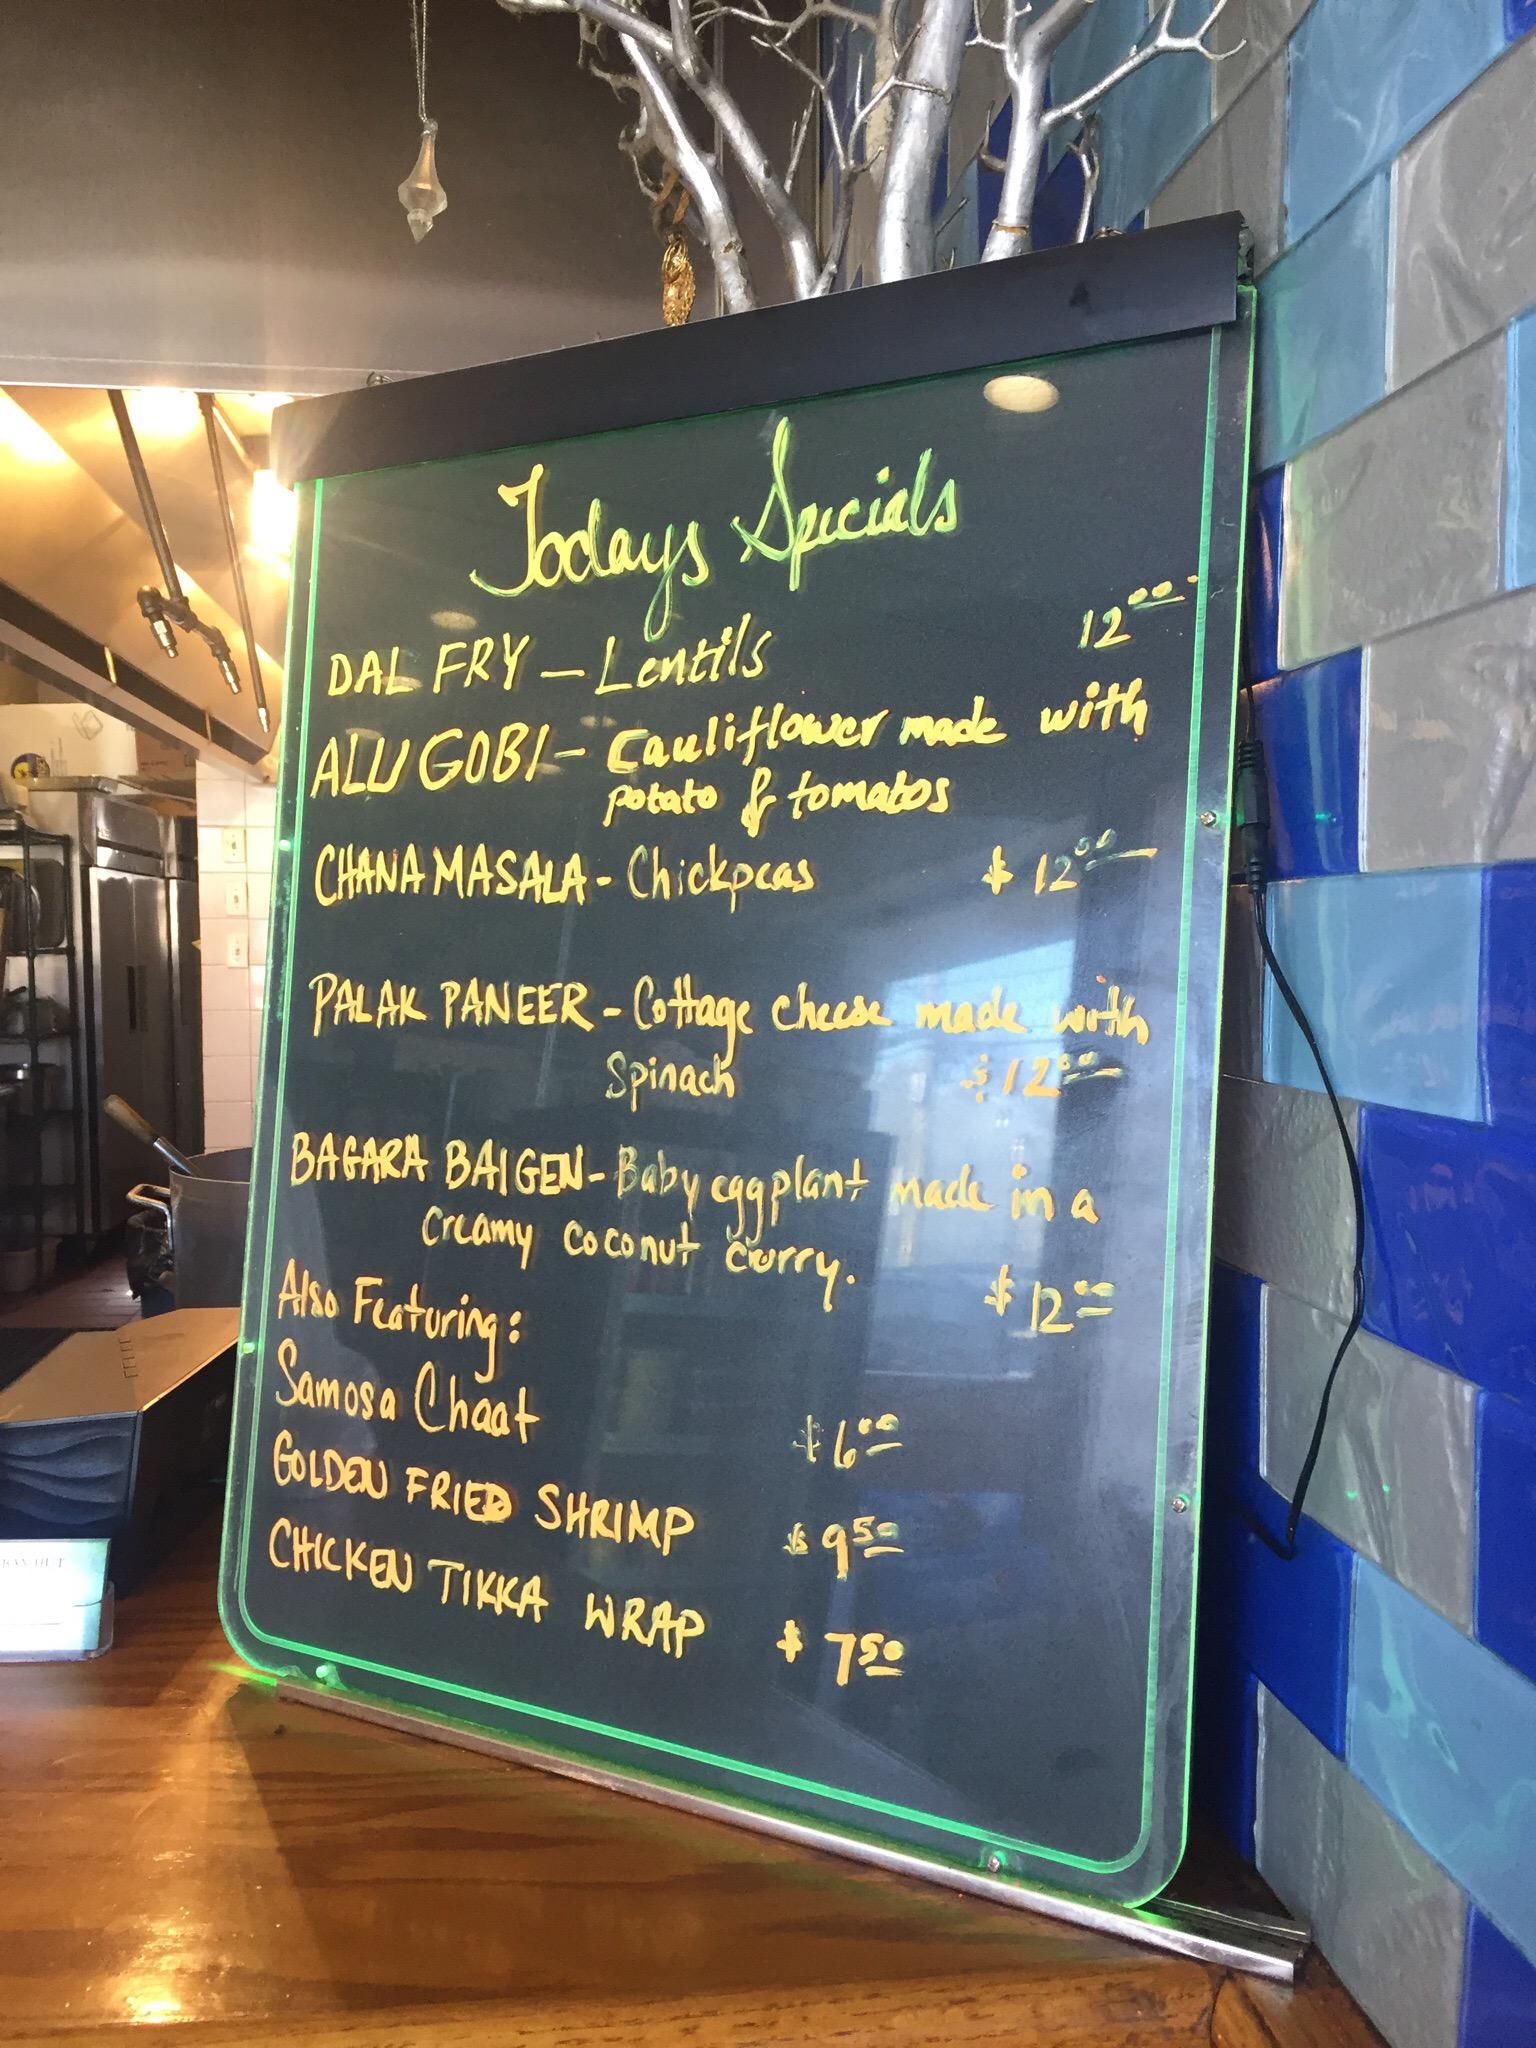 Todays Specials
DAL FRY – Lentils 12.00
ALU GOBI – Cauliflower made with
potato & tomatos
CHANA MASALA - Chickpeas $12.00
PALAK PANEER - Cottage cheese made with
Spinach $12.00
BAGARA BAIGEN - Baby eggplant made in a
creamy coconut curry. $12.00
Also Featuring:
Samosa Chaat $6.00
GOLDEN FRIED SHRIMP $9.50
CHICKEN TIKKA WRAP $7.50